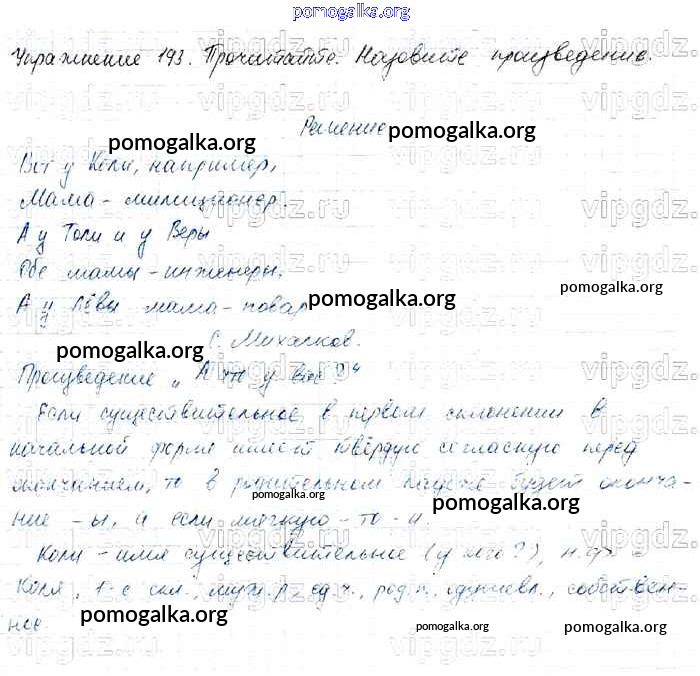 pomogalka.org
Упражнение 193. Прочитайте. Назовите произведение.
Решение pomogalka.org
pomogalka.org
Вот у Коли, например,
Мама - милиционер.
А у Толи и у Веры
Обе мамы - инженеры.
А у Лёвы мама - повар
pomogalka.org
pomogalka.org
С. Михалков.
pomogalka.org
Произведение „А что у вас?"
Если существительное в первом склонении в
начальной форме имеет твёрдую согласную перед
окончанием, то в родительном падеже будет оконча-
pomogalka.org
pomogalka.org
ние -ы, а если мягкую - то -и.
Коли - имя существительное (у кого?), н.ф. -
Коля, 1-е скл., муж. р., ед. ч., род. п., одушевл., собствен-
ное
pomogalka.org
pomogalka.org
pomogalka.org
vipgdz.ru